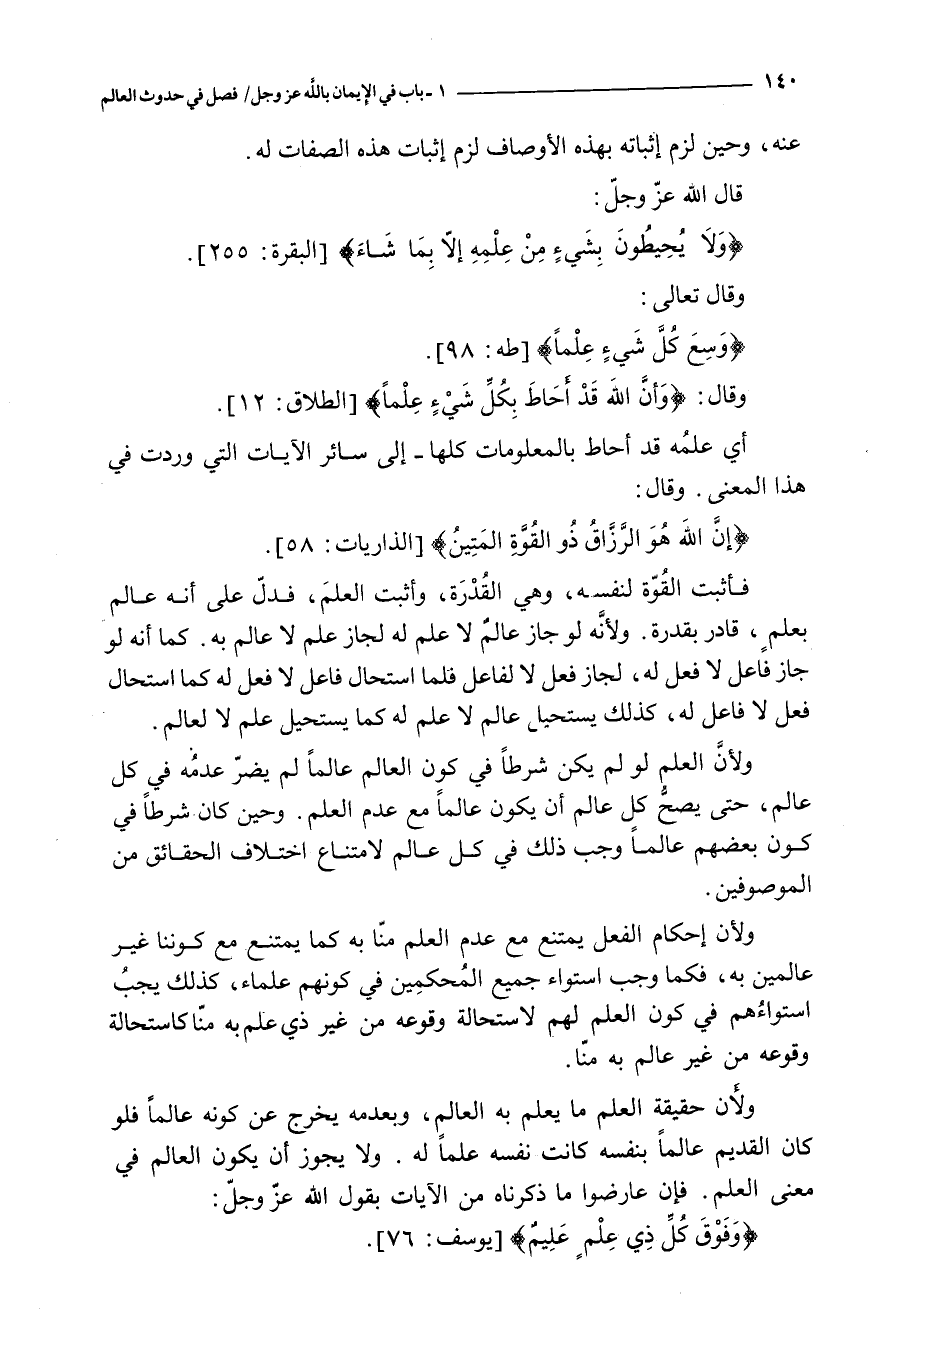 ١٤٠ ـــــــــــــــــــــ ١ ـ باب في الإيمان باللَّه عز وجل / فصل في حدوث العالم
عنه، وحين لزم إثباته بهذه الأوصاف لزم إثبات هذه الصفات له.
قال الله عزّ وجلّ:
﴿وَلَا يُحِيطُونَ بِشَيءٍ مِنْ عِلْمِهِ إلاّ بِمَا شَاءَ﴾ [البقرة: ٢٥٥].
وقال تعالى:
﴿وَسِعَ كُلَّ شَيءٍ عِلْماً﴾ [طه: ٩٨].
وقال: ﴿وَأنَّ اللهَ قَدْ أَحَاطَ بِكُلِّ شَيْءٍ عِلْماً﴾ [الطلاق: ١٢].
أي علمُه قد أحاط بالمعلومات كلها ـ إلى سائر الآيات التي وردت في
هذا المعنى. وقال:
﴿إنَّ اللهَ هُوَ الرَّزَّاقُ ذُو القُوَّةِ المَتِينُ﴾ [الذاريات: ٥٨].
فأثبت القُوّة لنفسه، وهي القُدْرَة، وأثبت العلمَ، فدلّ على أنه عالم
بعلمٍ، قادر بقدرة. ولأنَّه لو جاز عالمٌ لا علم له لجاز علم لا عالم به. كما أنه لو
جاز فاعل لا فعل له، لجاز فعل لا لفاعل فلما استحال فاعل لا فعل له كما استحال
فعل لا فاعل له، كذلك يستحيل عالم لا علم له كما يستحيل علم لا لعالم.
ولأنَّ العلم لو لم يكن شرطاً في كون العالم عالماً لم يضرّ عدمُه في كل
عالم، حتى يصحُّ كل عالم أن يكون عالماً مع عدم العلم. وحين كان شرطاً في
كون بعضهم عالماً وجب ذلك في كل عالم لامتناع اختلاف الحقائق من
الموصوفين.
ولأن إحكام الفعل يمتنع مع عدم العلم منّا به كما يمتنع مع كوننا غير
عالمين به، فكما وجب استواء جميع المُحكمِين في كونهم علماء، كذلك يجبُ
استواءُهم في كون العلم لهم لاستحالة وقوعه من غير ذي علم به منّا كاستحالة
وقوعه من غير عالم به منّا.
ولأَن حقيقة العلم ما يعلم به العالم، وبعدمه يخرج عن كونه عالماً فلو
كان القديم عالماً بنفسه كانت نفسه علماً له. ولا يجوز أن يكون العالم في
معنى العلم. فإن عارضوا ما ذكرناه من الآيات بقول الله عزّ وجلّ:
﴿وَفَوْقَ كُلِّ ذِي عِلْمٍ عَلِيمٌ﴾ [يوسف: ٧٦].